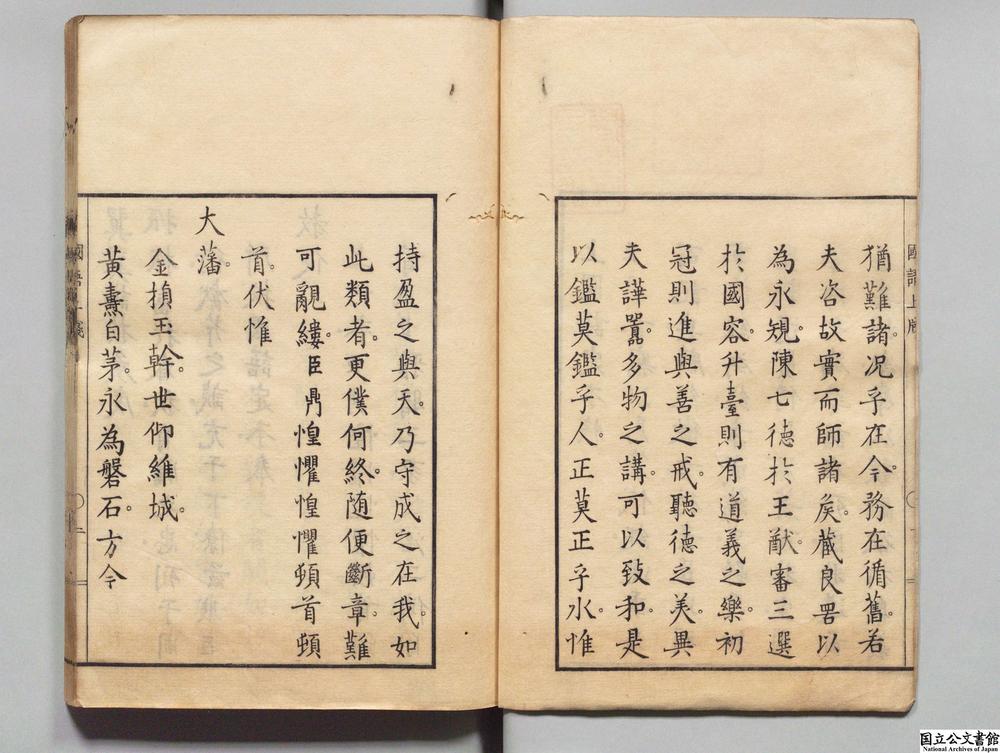 猶難諸。况乎在今。務在循舊。若
夫咨故實而師諸矦。蕆良罟以
為永規。陳七德於王猷。審三選
於國容。升臺則有道義之樂。初
冠則進與善之戒。聽德之美。異
夫譁嚣。多物之講。可以致和。是
以鑑莫鑑乎人。正莫正乎水。惟
國語上牋
持盈之與天。乃守成之在我。如
此類者。更僕何終。随便斷章。難
可覼縷。臣鼎惶懼惶懼頓首頓
首。伏惟
大藩。
金楨玉幹。世仰維城。
黃燾白茅。永為磐石。方今
國語上牋
国立公文書館
National Archives of Japan